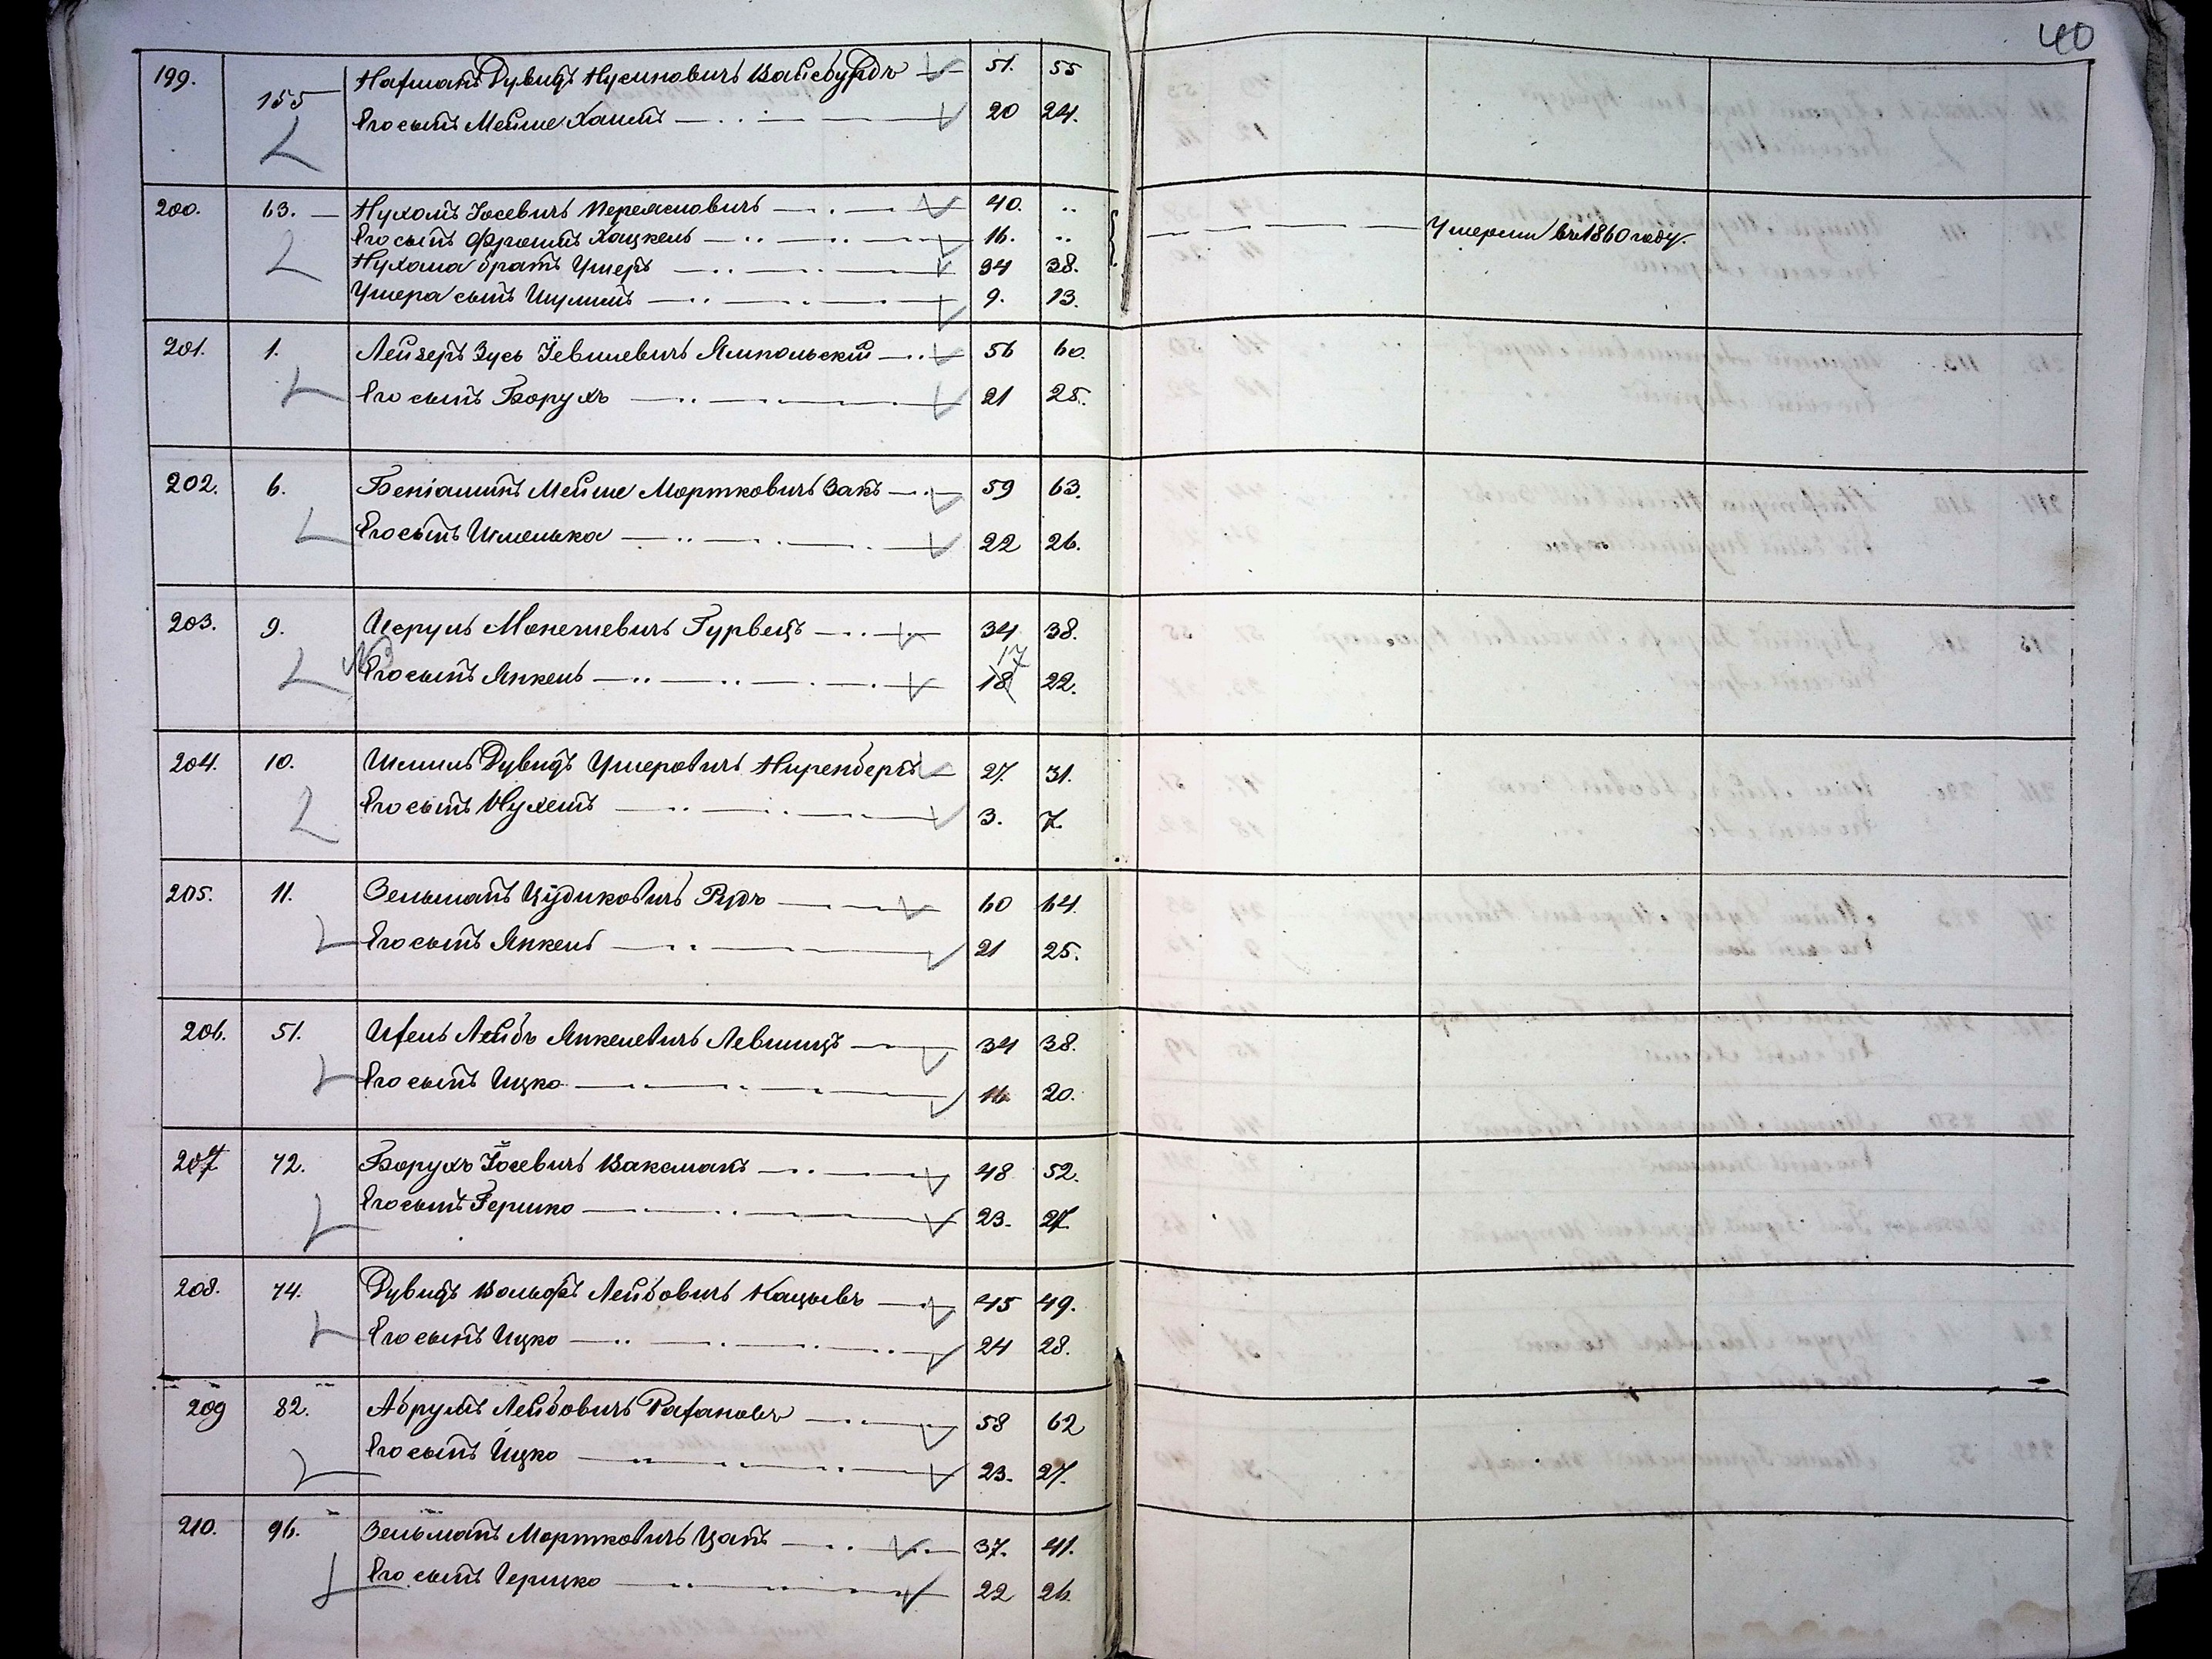 40
199. 155 Нахманъ Дувидъ Нусиновичъ Вайсбурдъ 51. 55
Его сынъ Мейше Хаимъ 20 24.
200. 63. Нухомъ Іосевичъ Переясловичъ 40. ..
Его сынъ Фроимъ Хацкель 16. .. Умерли въ 1860 году.
Нухома братъ Ушеръ 34 38.
Ушера сынъ Шулимъ 9. 13.
201. 1. Лейзеръ Зусь Іевшевичъ Ямпольскій 56 60.
Его сынъ Борухъ 21 25.
202. 6. Беніаминъ Мейше Мортковичъ Закъ 59 63.
Его сынъ Шмелька 22 26.
203. 9. Исруль Манелевичъ Гурвецъ 34 38.
17
Его сынъ Янкель 18 22.
204. 10. Шмиль Дувидъ Ушеровичъ Ниренбергъ 27. 31.
Его сынъ Нухемъ 3. 7.
205. 11. Зельманъ Іудиковичъ Рудъ 60 64.
Его сынъ Янкель 21 25.
206. 51. Лейбъ Янкелевичъ Левшицъ 34 38.
Его сынъ Ицко 16 20.
207 72. Борухъ Іосевичъ Ваксманъ 48 52.
Его сынъ Гершко 23. 27.
208. 74. Дувидъ Вольфъ Лейбовичъ Кацывъ 45 49.
Его сынъ Ицко 24 28.
209 82. Абрумъ Лейбовичъ 58 62
Его сынъ Ицко 23. 27.
210. 96. Зельманъ Мортковичъ Цапъ 37. 41.
Его сынъ Гершко 22 26.